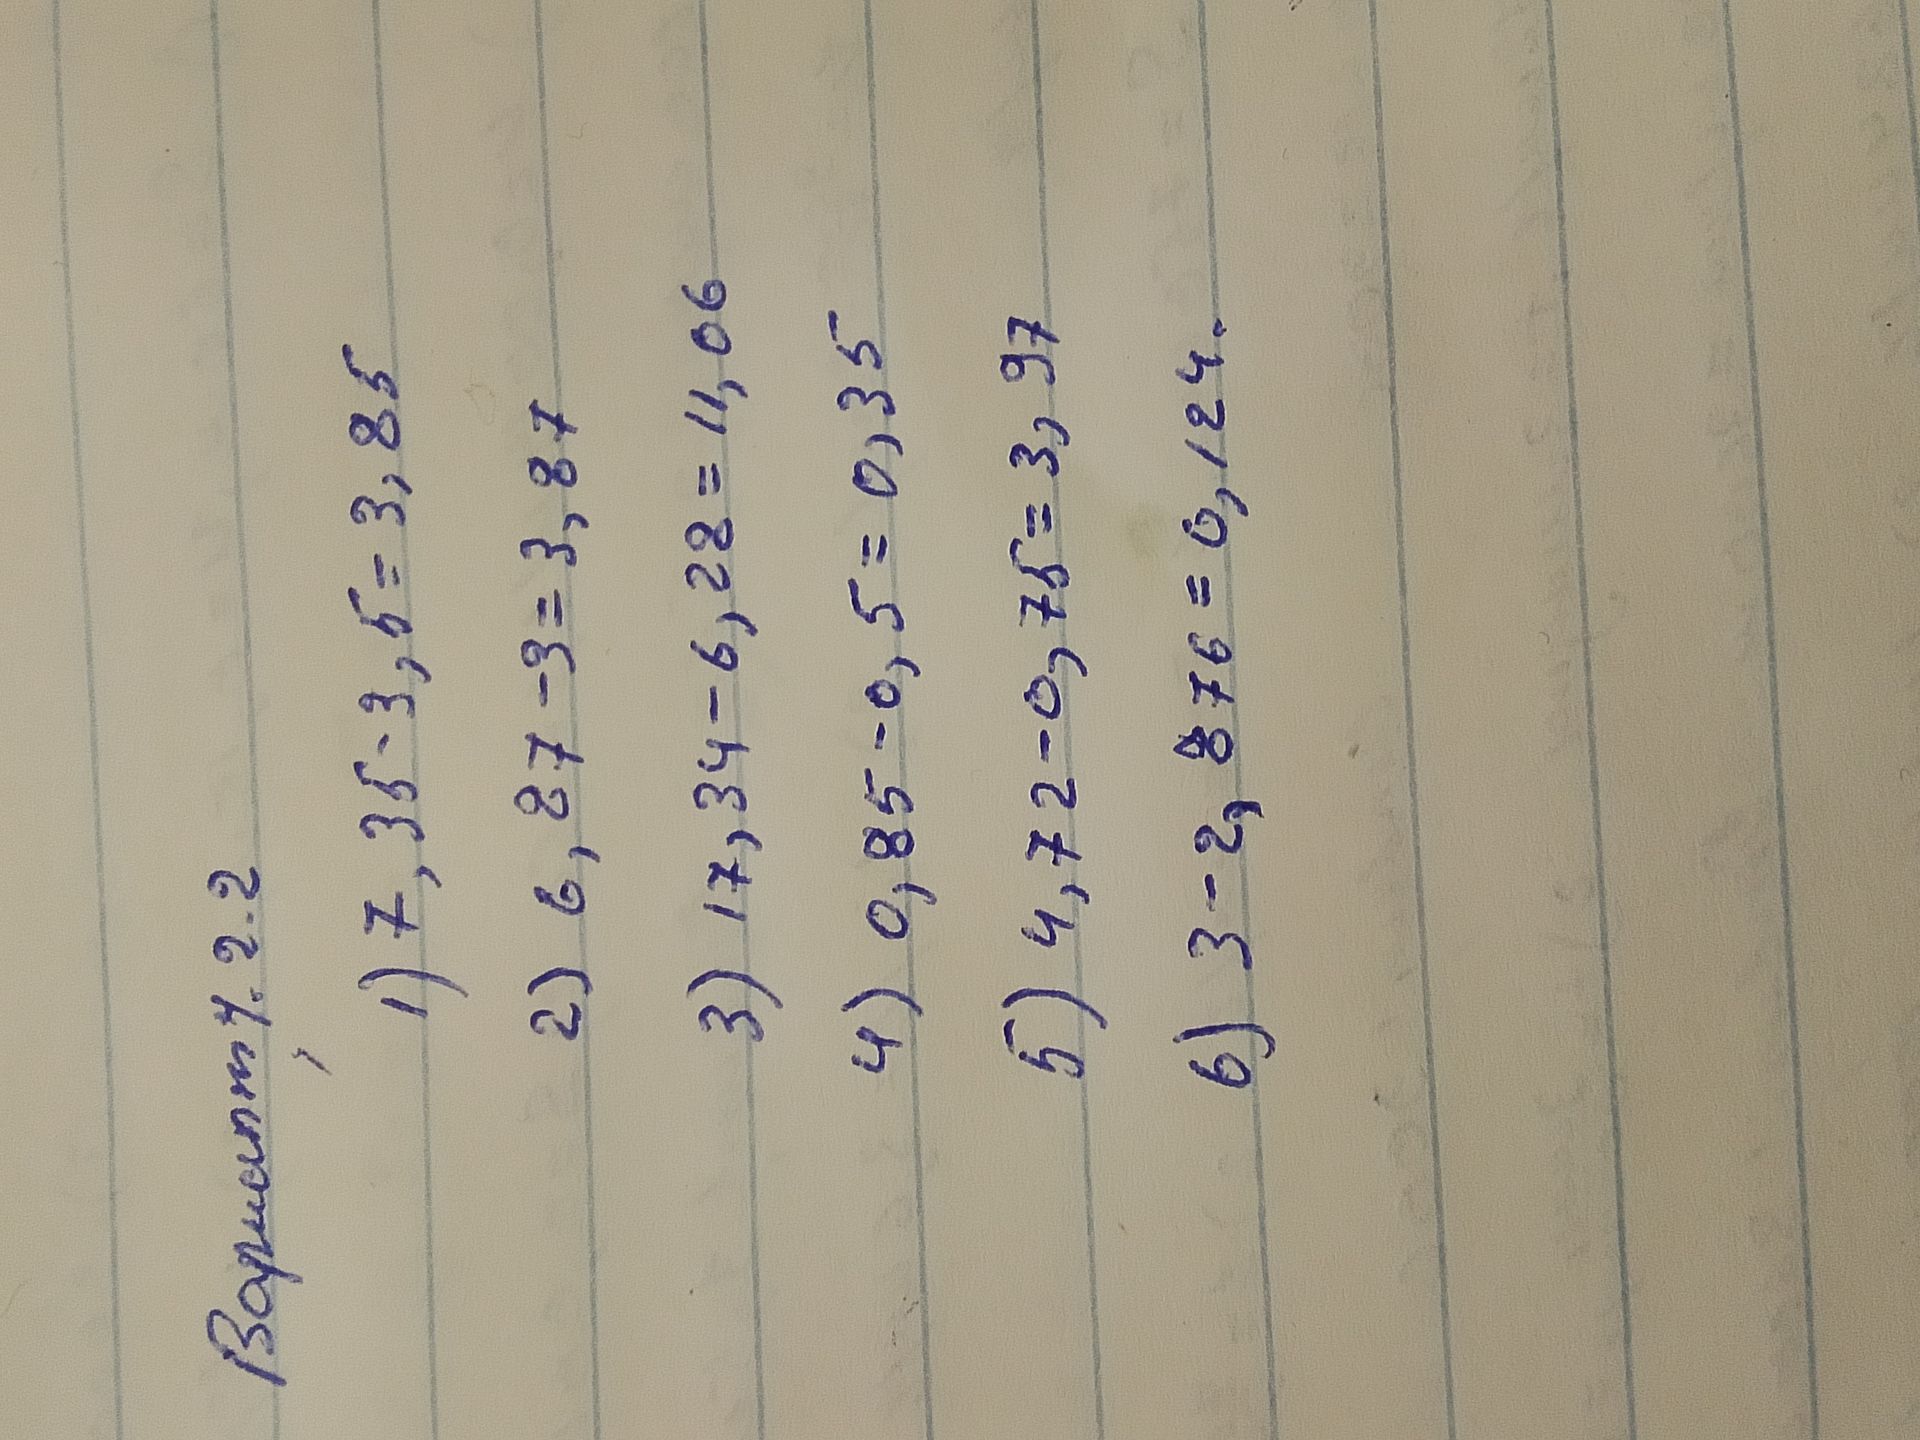 Вариант 7. 2.2
1) 7,35-3,5=3,85
2) 6,87-3=3,87
3) 17,34-6,28=11,06
4) 0,85-0,5=0,35
5) 4,72-0,75=3,97
6) 3-2,876=0,124.